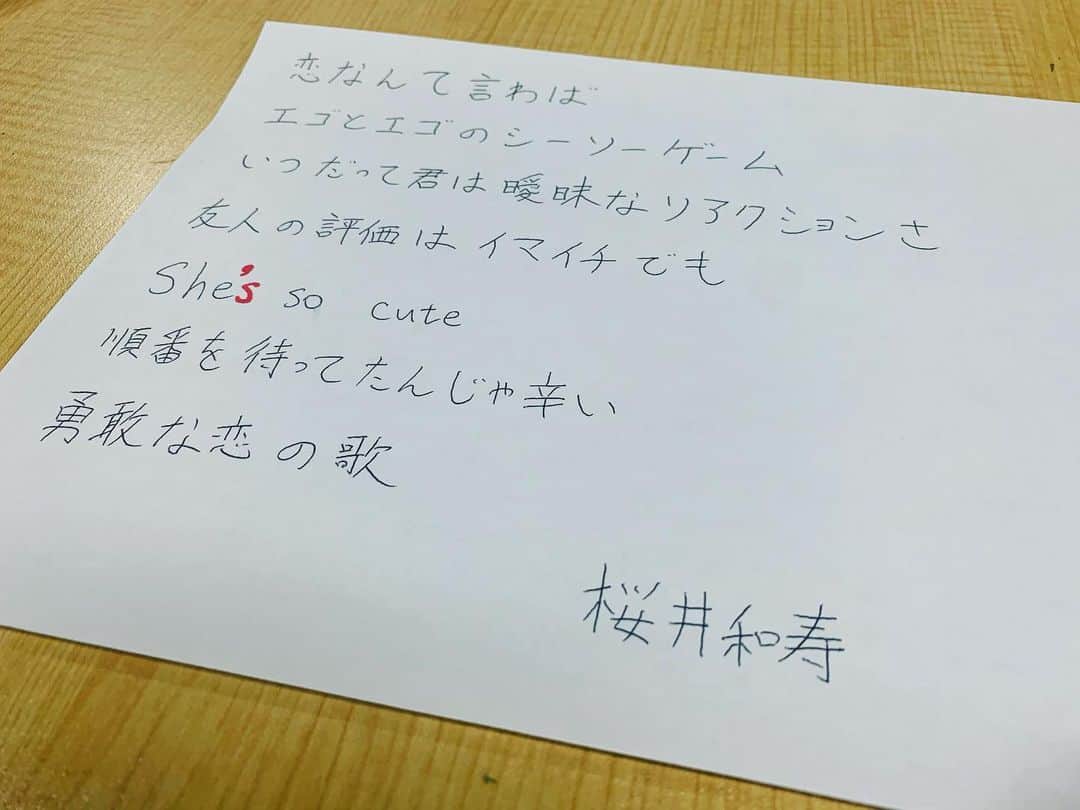 恋なんて言わば
エゴとエゴのシーソーゲーム
いつだって君は曖昧なリアクションさ
友人の評価はイマイチでも
She's so cute
順番を待ってたんじゃ辛い
勇敢な恋の歌
桜井和寿